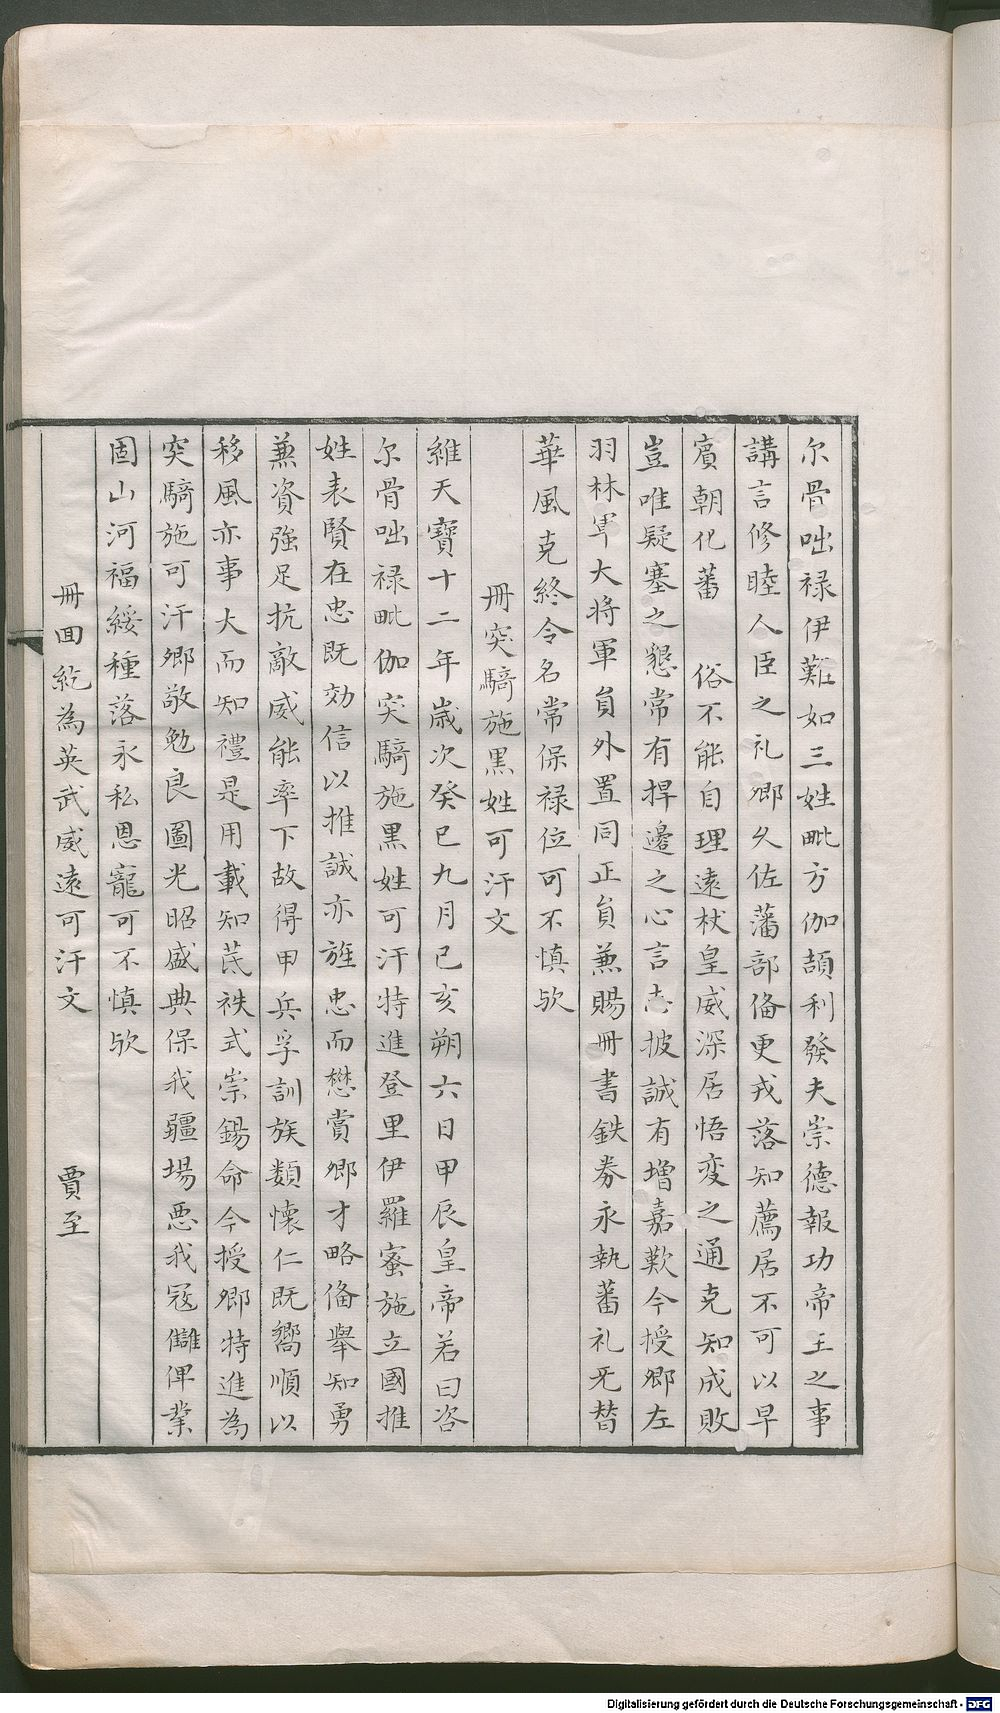 尔骨咄禄伊難如三姓毗方伽頡利發夫崇德報功帝王之事
講言修睦人臣之礼卿久佐藩部俻更戎落知薦居不可以早
賓朝化蕃 俗不能自理遠杖皇威深居悟变之通克知成敗
豈唯疑塞之懇常有捍邊之心言志披誠有增嘉歎今授卿左
羽林軍大将軍員外置同正員兼賜冊書鉄券永執蕃礼旡替
華風克終令名常保禄位可不慎欤
冊突騎施黑姓可汗文
維天寶十二年歳次癸巳九月己亥朔六日甲辰皇帝若曰咨
尔骨咄禄毗伽突騎施黒姓可汗特進登里伊羅蜜施立國推
姓表賢在忠既効信以推誠亦旌忠而懋賞卿才略俻舉知勇
兼資強足抗敵威能率下故得甲兵孚訓族類懐仁既嚮順以
移風亦事大而知禮是用載知茂袟式崇錫命今授卿特進為
突騎施可汗卿敬勉良圖光昭盛典保我疆場悪我冦讎俾業
固山河福綏種落永私恩寵可不慎欤
冊回紇為英武威遠可汗文 賈至
Digitalisierung gefördert durch die Deutsche Forschungsgemeinschaft - DFG